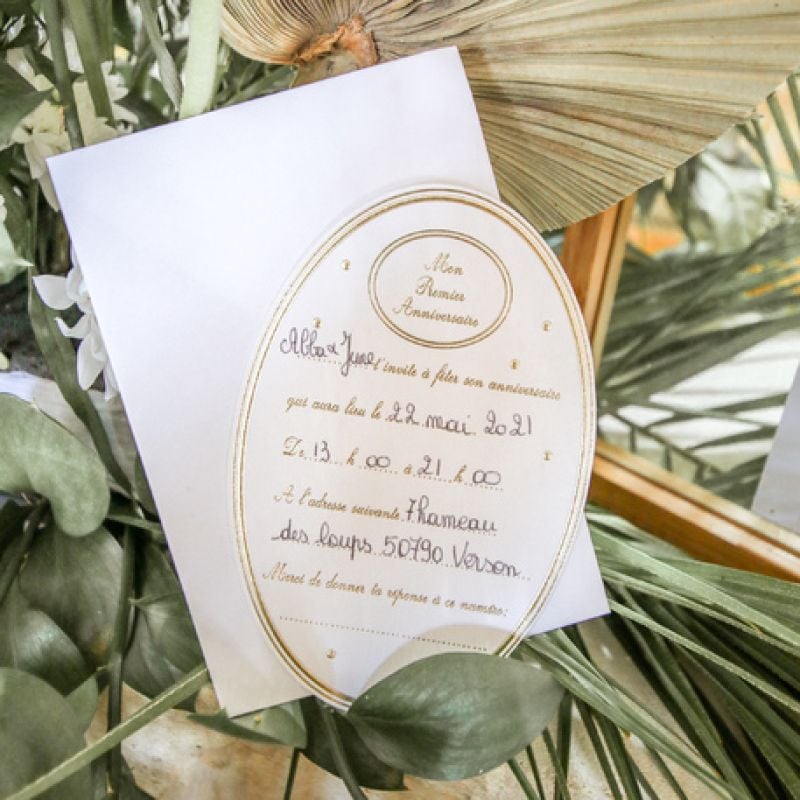 Mon
Premier
Anniversaire
Alba & June t'invite à fêter son anniversaire
qui aura lieu le 22 mai 2021
De 13 h 00 à 21 h 00
A l'adresse suivante 7 hameau
des loups 50790 Verson
Merci de donner ta réponse à ce numéro: